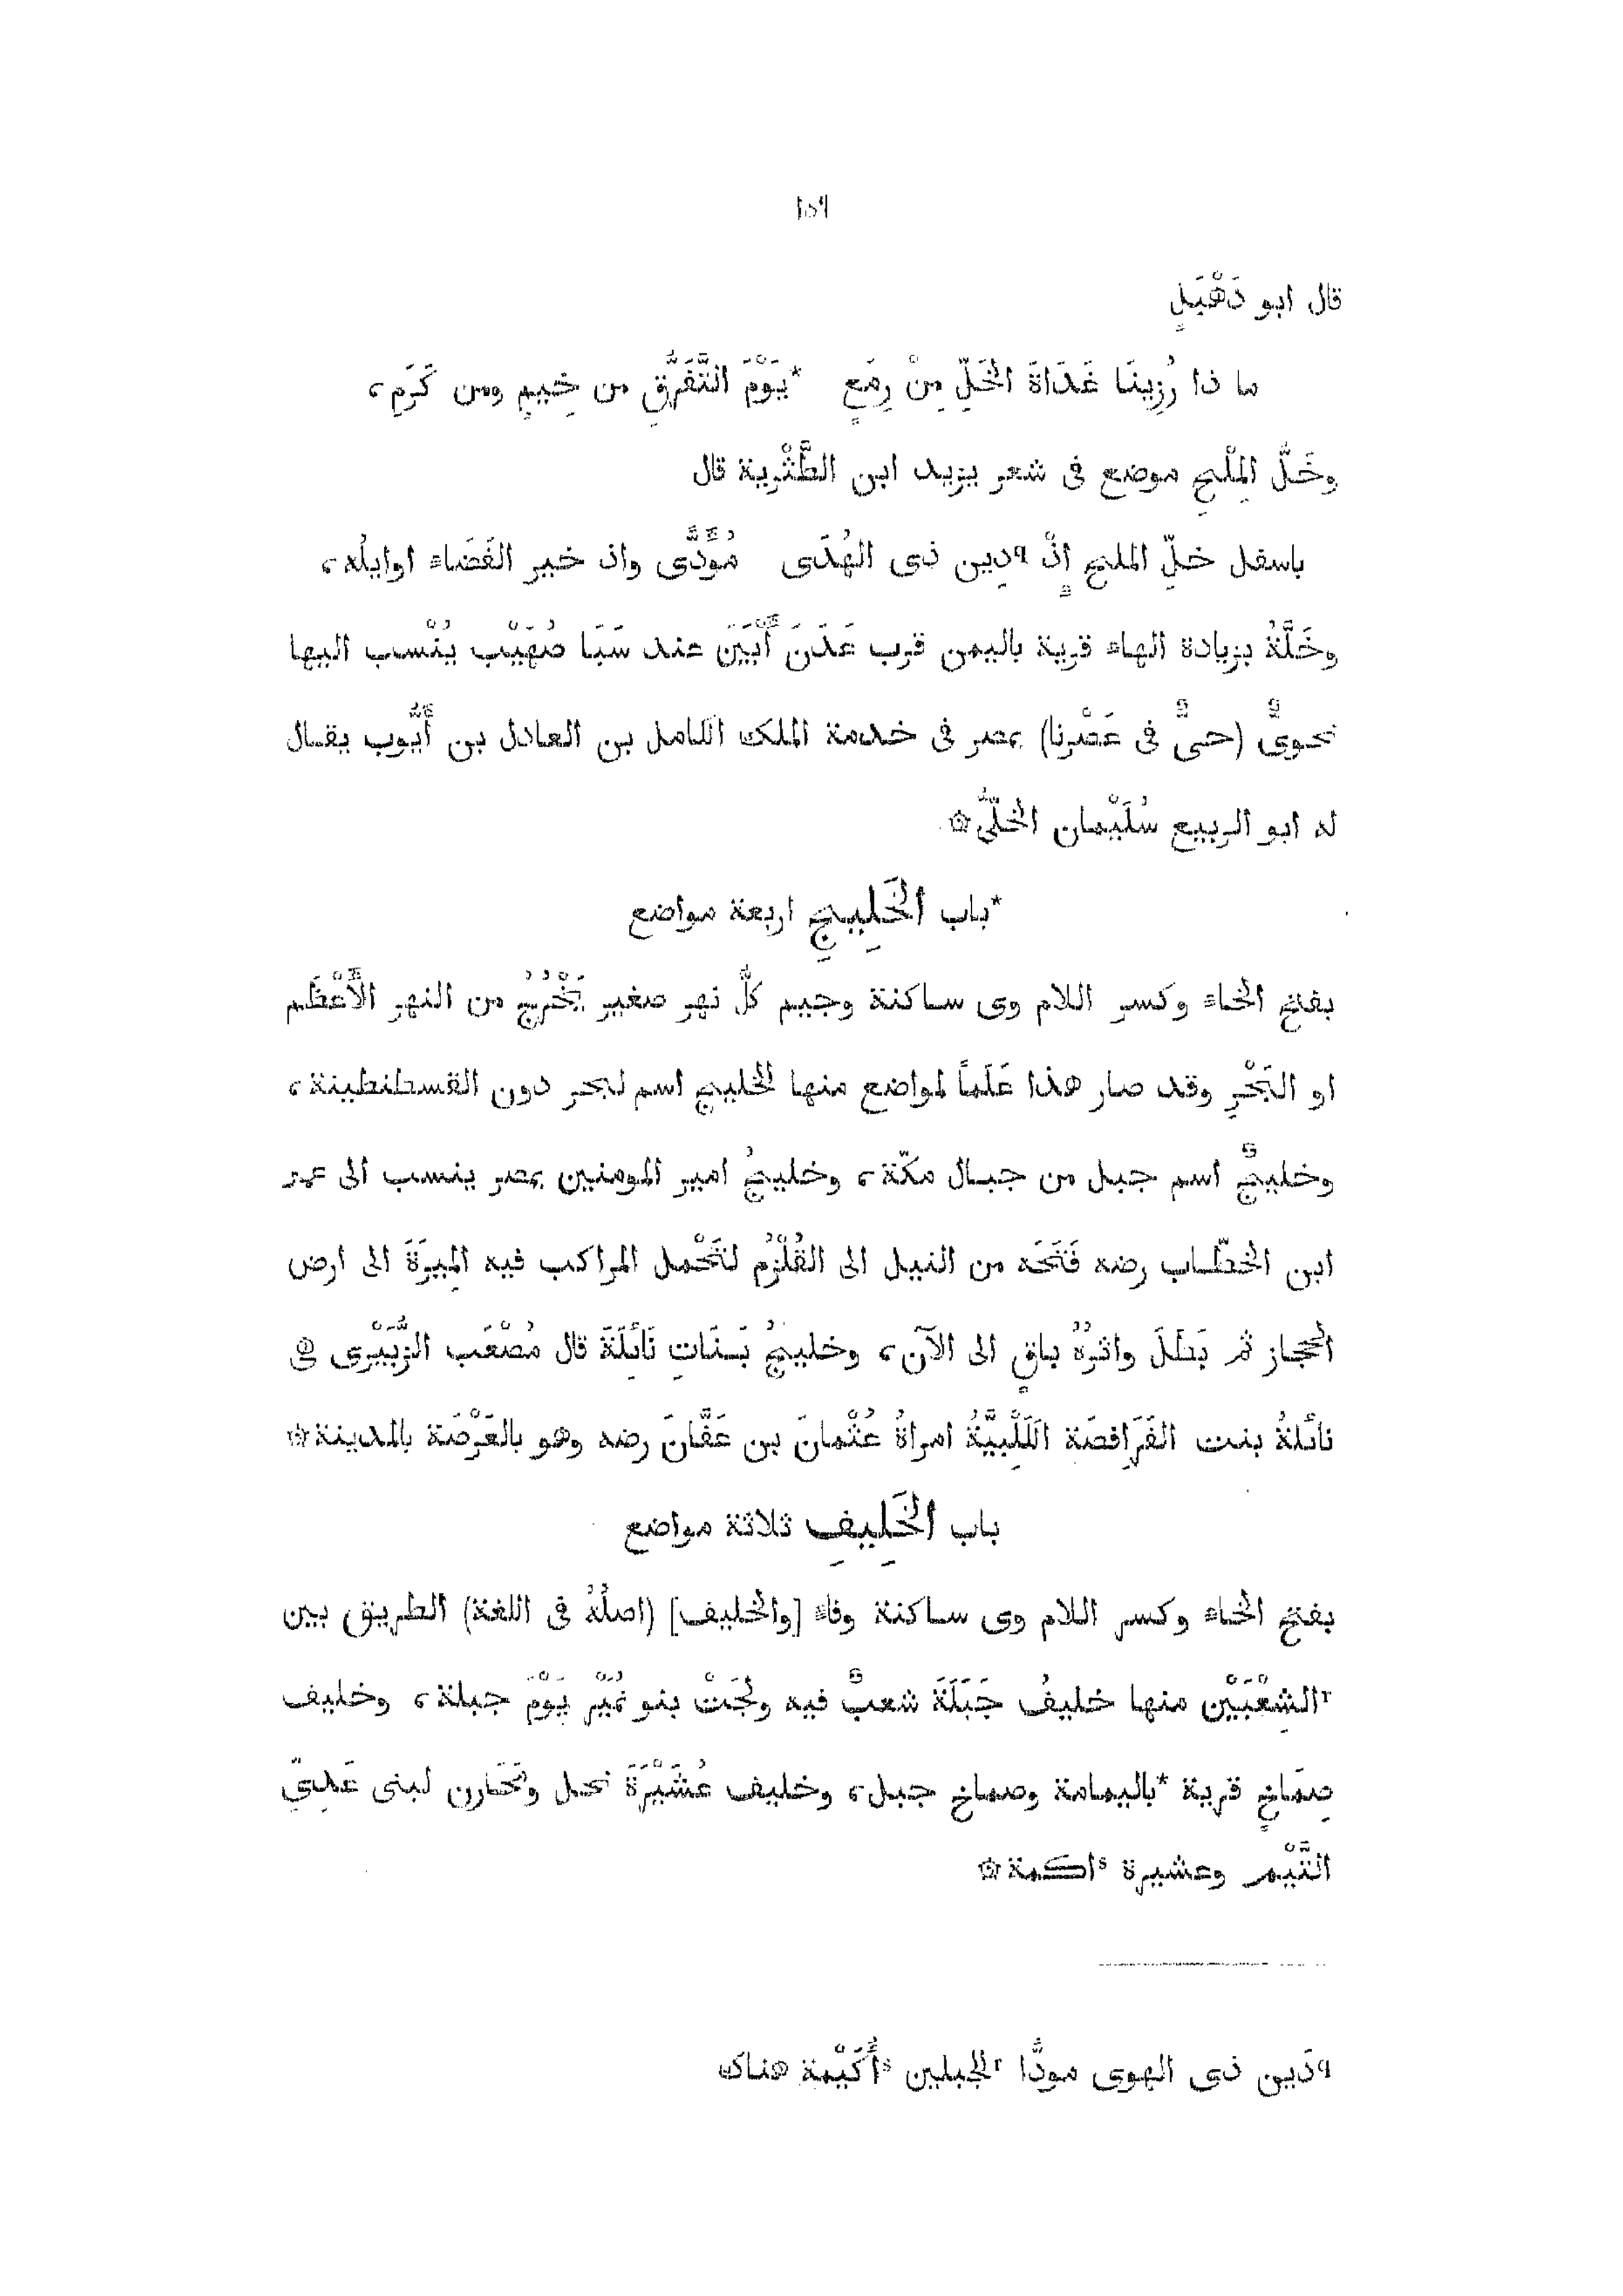 ١٥٩
قال ابو دَهْبَلٍ
ما ذا رُزِينَا غَدَاةَ الخَلِّ مِنْ رِمَعٍ *يَوْمَ التَّفَرُّقِ من خِيمٍ ومن كَرَمِ،
وخَلُّ المِلْحِ موضع فى شعر يزيد ابن الطَّثْرية قال
باسفل خلِّ الملح إِذْ qدِين ذى الهُدَى مُوَّدَّى واذ خير القَضَاء اوايلُه،
وخَلَّةُ بزيادة الهاء قرية باليمن قرب عَدَنَ أَبْيَنَ عند سَبَا صُهَيْب يُنْسب اليها
نحوىٌّ (حىٌّ فى عَصْرنا) بمصر فى خدمة الملك الكامل بن العادل بن أَيُّوب يقال
له ابو الربيع سُلَيْمان الخَلّىُّ ۞
*باب الخَلِيجِ اربعة مواضع
بفتح الخاء وكسر اللام وى ساكنة وجيم كلُّ نهر صغير يَخْرُجُ من النهر الأَعْظَم
او البَحْرِ وقد صار هذا عَلَماً لمواضع منها الخليج اسم لبحر دون القسطنطينة،
وخليجٌ اسم جبل من جبال مكّة، وخليجُ امير المومنين بمصر ينسب الى عمر
ابن الخطّاب رضه فَتَحَه من النيل الى القُلْزُم لتَحْمل المراكب فيه المِيرَةَ الى ارض
الحجاز ثم بَطَلَ واثرُهُ باقٍ الى الآن، وخليجُ بَنَاتِ نَائِلَةَ قال مُصْعَب الزُّبَيْرى فى
نائلةُ بنت الفَرَافِصَة الكَلْبِيَّةُ امراةُ عُثْمانَ بن عَفَّانَ رضه وهو بالعَرْصَة بالمدينة ۞
باب الخَلِيفِ ثلاثة مواضع
بفتح الخاء وكسر اللام وى ساكنة وفاء [والخليف] (اصلُهُ فى اللغة) الطريق بين
rالشِعْبَيْن منها خليفُ جَبَلَةَ شعبٌ فيه ولَجَتْ بنو نُمَيْر يَوْمَ جبلة، وخليف
صِمَاخٍ قرية *باليمامة وصماخ جبل، وخليف عُشَيْرَةَ نخل ومَحَارن لبنى عَدِىِّ
التَّيْم وعشيرة sاكمة ۞
qدَين ذى الهوى مودًّا rالجبلين sأُكَيْمة هناك